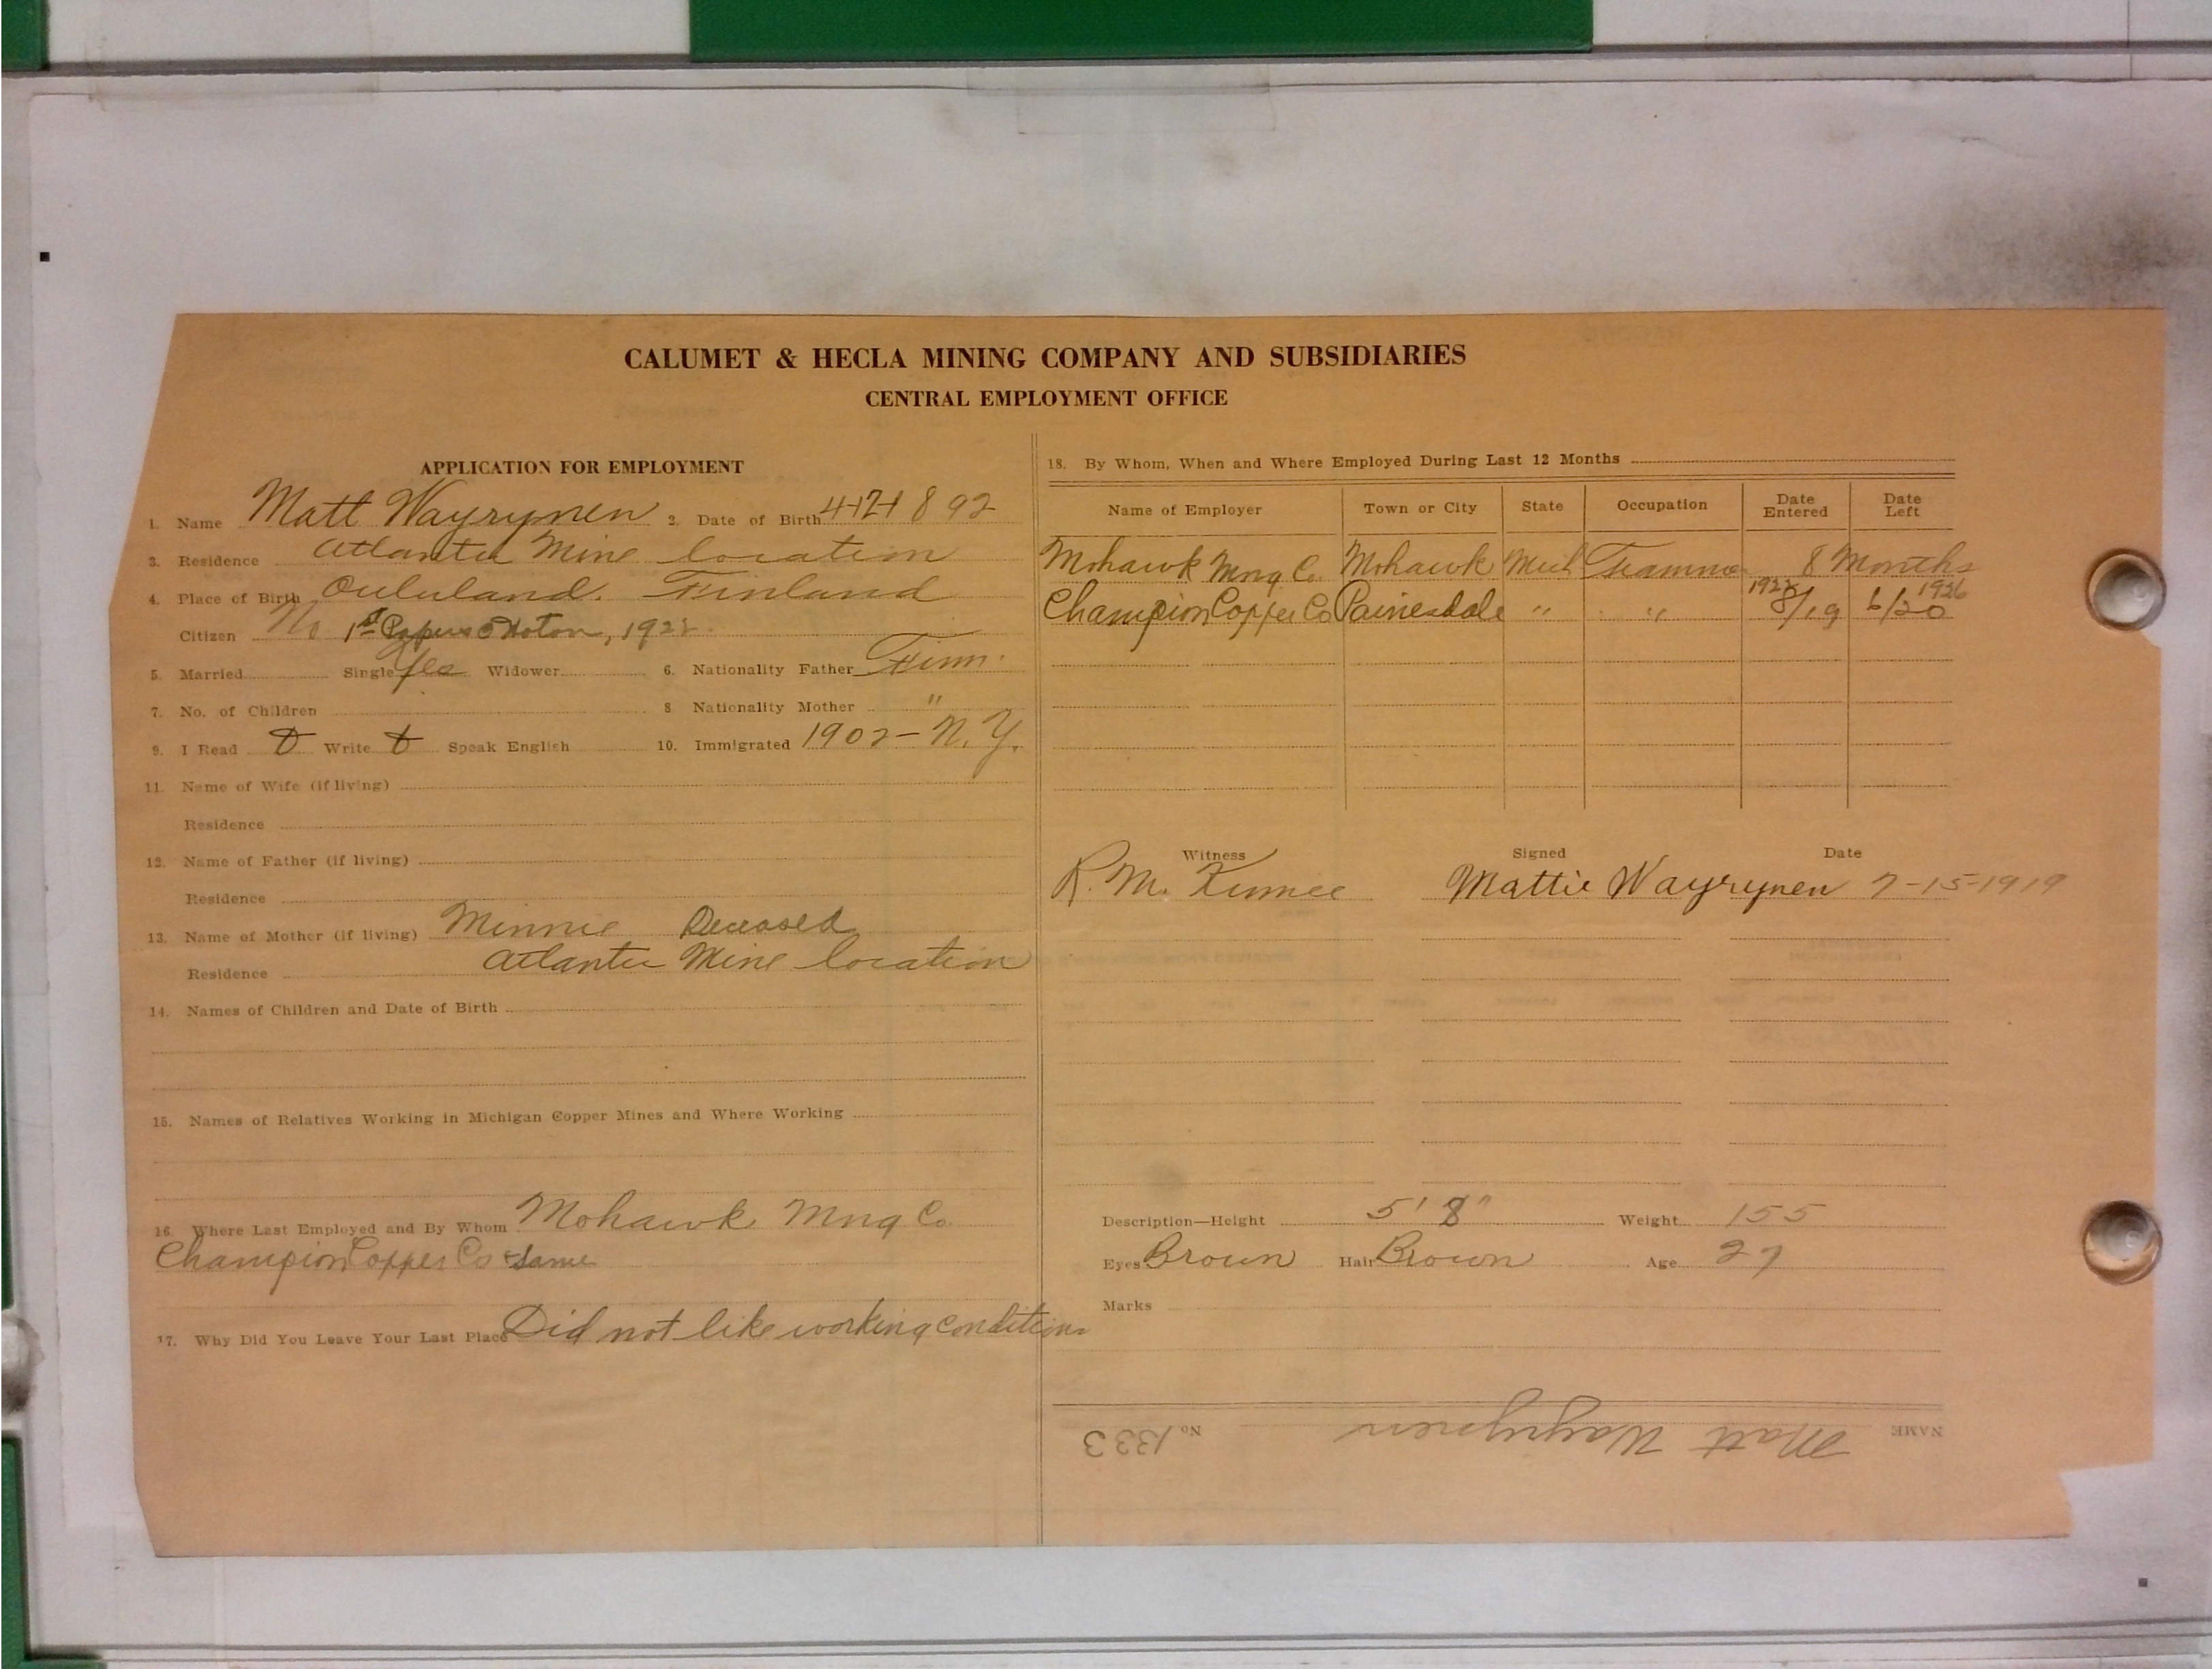 CALUMET & HECLA MINING COMPANY AND SUBSIDIARIES
CENTRAL EMPLOYMENT OFFICE
APPLICATION FOR EMPLOYMENT
1. Name Matt Wayrynen 2. Date of Birth 4-12-1892
3. Residence Atlantic Mine location
4. Place of Birth Oululand. Finland
Citizen No 1st Papers Hoton, 192
5. Married Single Yes Widower 6. Nationality Father Finn.
7. No. of Children 8 Nationality Mother "
9. I Read Write Speak English 10. Immigrated 1902 - N.Y.
11. Name of Wife (if living)
Residence
12. Name of Father (if living)
Residence
13. Name of Mother (if living) Minnie Deceased
Residence Atlantic Mine location
14. Names of Children and Date of Birth
15. Names of Relatives Working in Michigan Copper Mines and Where Working
16. Where Last Employed and By Whom Mohawk Mng Co.
Champion Copper Co same
17. Why Did You Leave Your Last Place Did not like working conditions
18. By Whom, When and Where Employed During Last 12 Months
Name of Employer Town or City State Occupation Date Entered Date Left
Mohawk Mng Co. Mohawk Mich Trammer 8 Months
Champion Copper Co Painesdale " " 8/19 6/20 1926
Witness Signed Date
R. M. Mattie Wayrynen 7-15-1919
Description—Height 5' 8" Weight 155
Eyes Brown Hair Brown Age 27
Marks
NAME Matt Wayrynen No 1333